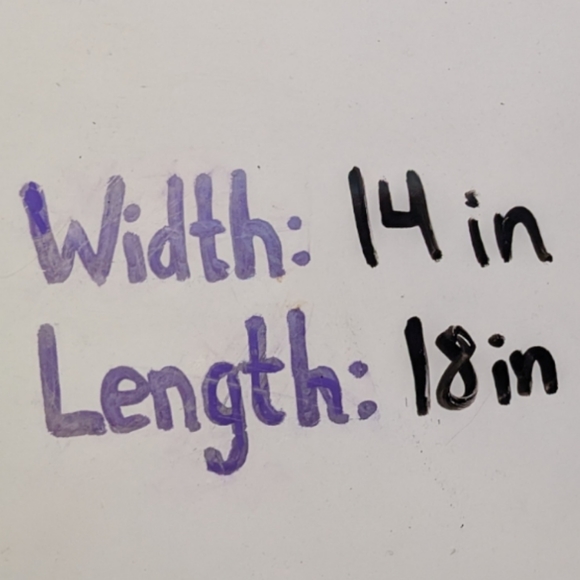 Width: 14 in
Length: 18 in